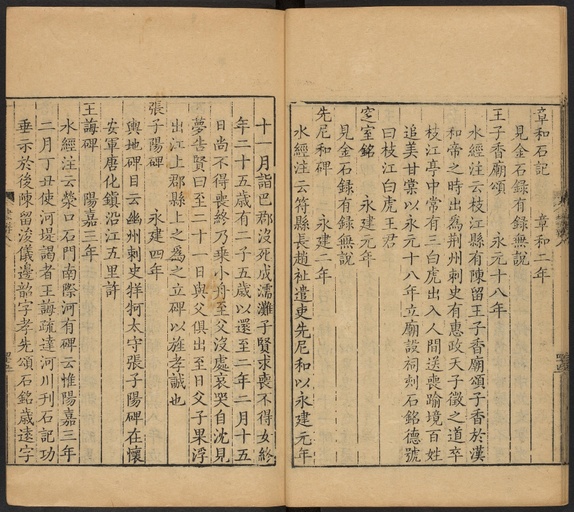 章和石記　章和二年
見金石録有録無說
王子香廟頌　永元十八年
水經注云枝江縣有陳留王子香廟頌子香於漢
和帝之時出為荆州刺史有惠政天子徵之道卒
枝江亭中常有三白虎出入人間送喪踰境百姓
追美甘棠以永元十八年立廟設祠刻石銘德號
曰枝江白虎王君
室銘　永建元年
見金石録有録無說
先尼和碑　永建二年
水經注云符縣長趙祉遣吏先尼和以永建元年
十一月詣巴郡沒死成濡灘子賢求喪不得女終
年二十五歲有二子五歲以還至二年二月十五
日尚不得喪終乃乘小舟至父沒處哀哭自沈見
夢告賢曰至二十一日與父俱出至日父子果浮
出江上郡縣上之為之立碑以旌孝誠也
張子陽碑　永建四年
輿地碑目云幽州刺史牂牁太守張子陽碑在懷
安軍唐化鎮沿江五里許
王誨碑　陽嘉三年
水經注云滎口石門南際河有碑云惟陽嘉三年
二月丁丑使河堤謁者王誨疏達河川刋石記功
垂示於後陳留浚儀邊韶字孝先頌石銘歲遠字